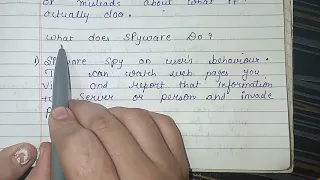 or misleads about what it
actually doo.
What does Spyware Do?
1) Spyware Spy on user's behaviour.
T can watch web pages you
Vi and report that information
to Server or person and invade